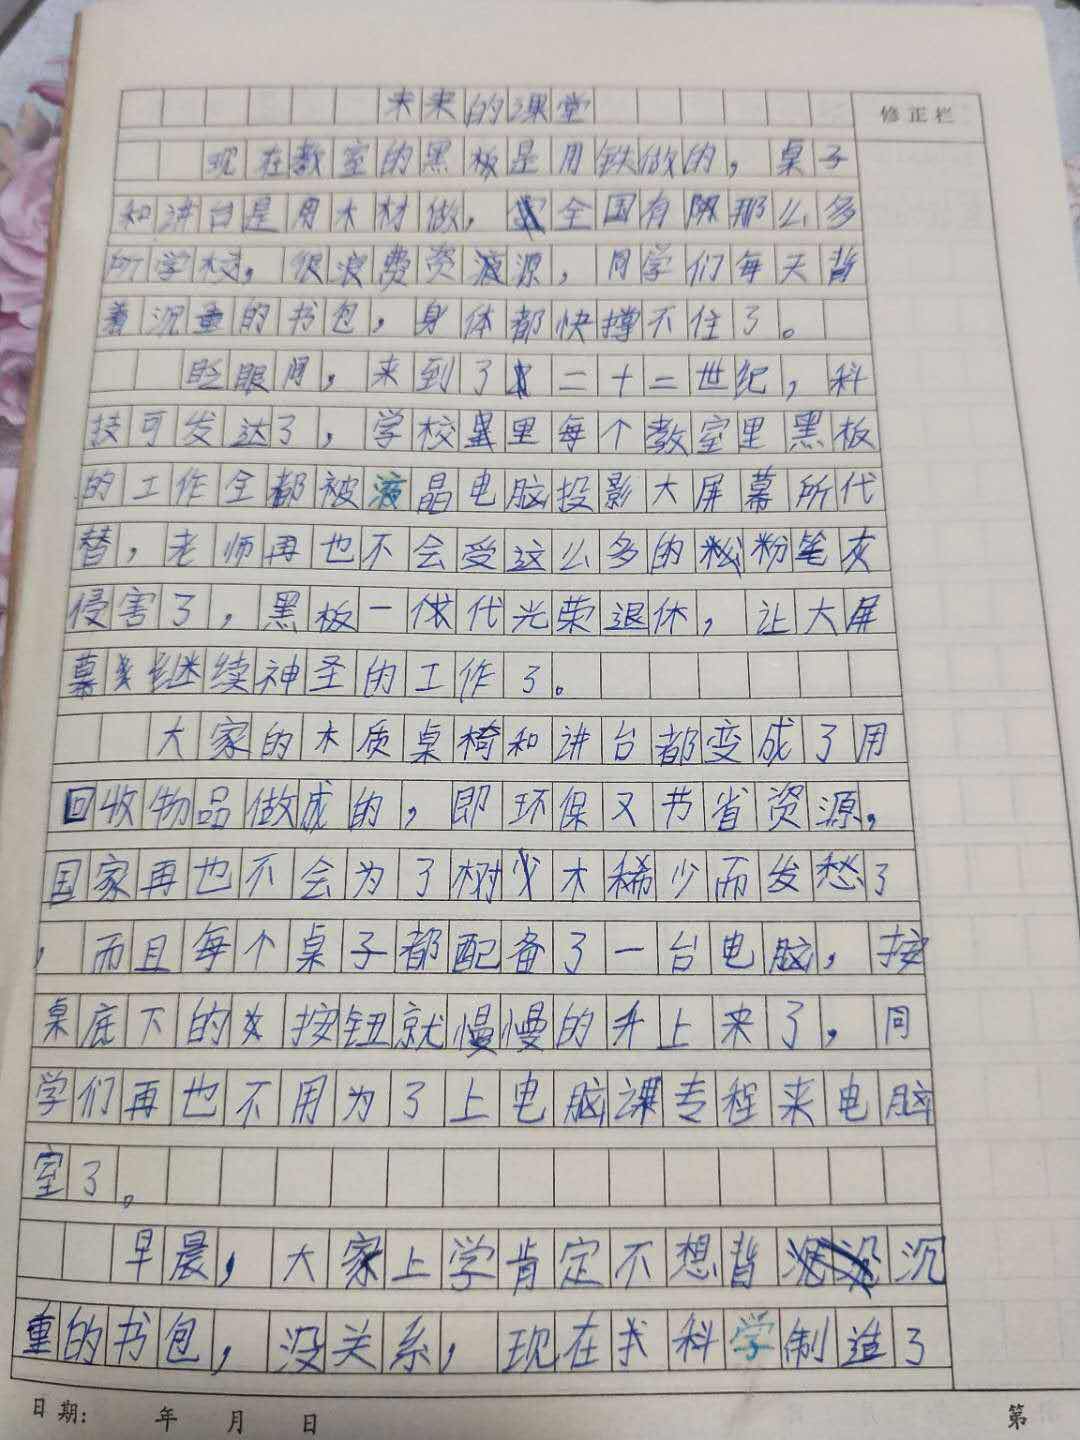 未来的课堂
修正栏
现在教室的黑板是用铁做的，桌子
和讲台是用木材做，全国有那么多
所学校，很浪费资源，同学们每天背
着沉重的书包，身体都快撑不住了。
眨眼间，来到了二十二世纪，科
技可发达了，学校里每个教室里黑板
的工作全都被液晶电脑投影大屏幕所代
替，老师再也不会受这么多的粉笔灰
侵害了，黑板一代代光荣退休，让大屏
幕继续神圣的工作了。
大家的木质桌椅和讲台都变成了用
回收物品做成的，即环保又节省资源，
国家再也不会为了树木稀少而发愁了
，而且每个桌子都配备了一台电脑，按
桌底下的按钮就慢慢的升上来了，同
学们再也不用为了上电脑课专程来电脑
室了。
早晨，大家上学肯定不想背沉
重的书包，没关系，现在科学制造了
日期： 年 月 日
第